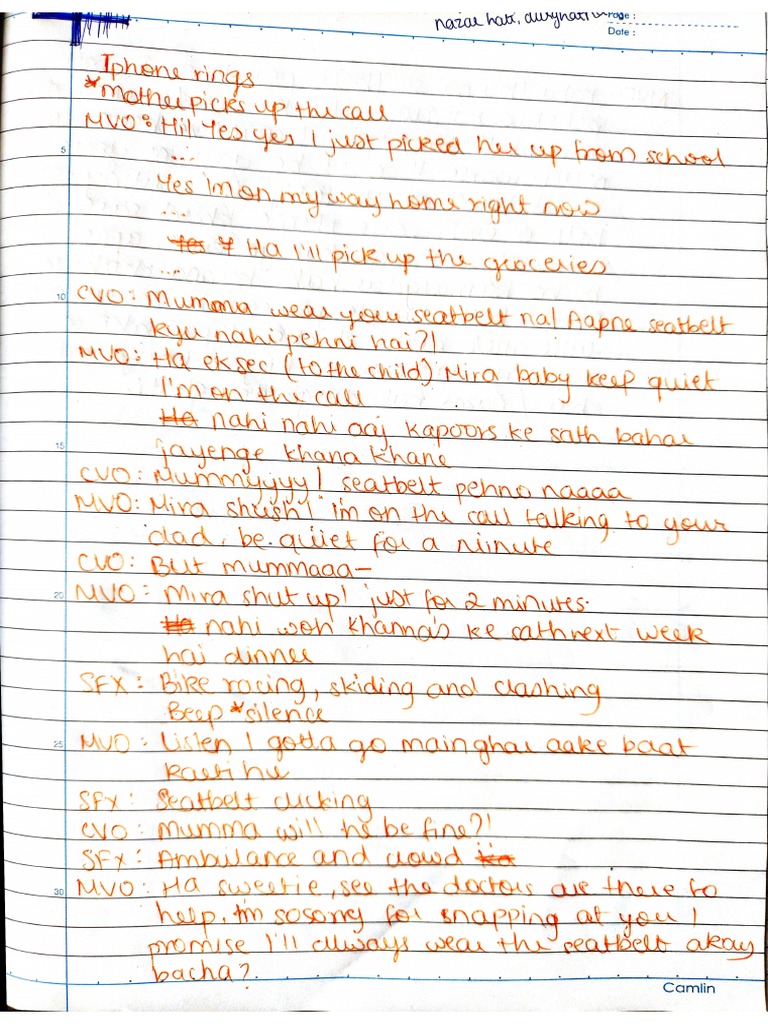 nazar hati, durghatna
Page :
Date :
Iphone rings
*Mother picks up the call
MVO: Hi! Yes yes I just picked her up from school
5
...
Yes im on my way home right now
...
Yes Y Ha I'll pick up the groceries
...
10 CVO: Mumma wear your seatbelt na! Aapne seatbelt
kyu nahi pehni hai?!
MVO: Ha ek sec (to the child) Mira baby keep quiet
I'm on the call
Ha nahi nahi aaj Kapoors ke sath bahar
15 jayenge khana khane
CVO: Mummyyyy! seatbelt pehno naaaa
MVO: Mira shush! i'm on the call talking to your
dad, be quiet for a minute
CVO: But mummaaa—
20 MVO: Mira shut up! just for 2 minutes.
Ha nahi woh Khanna's ke sath next week
hai dinner
SFX: Bike racing, skiding and clashing
Beep *silence
25 MVO: Listen I gotta go main ghar aake baat
karti hu
SFX: Seatbelt clicking
CVO: Mumma will he be fine?!
SFX: Ambulance and crowd
30 MVO: Ha sweetie, see the doctors are there to
help. I'm so sorry for snapping at you I
promise I'll always wear the seatbelt okay
bacha?
Camlin